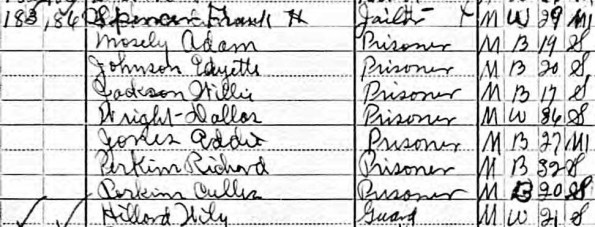 183 186 Spencer Frank H Jailer M W 29 M1
Mosely Adam Prisoner M B 19 S
Johnson Prisoner M B 20 S
Jackson Willie Prisoner M B 17 S
Wright Dallas Prisoner M W 36 S
Jones Addie Prisoner M B 27 M1
Perkins Richard Prisoner M B 32 S
Perkins Prisoner M B 20 S
Hillard Wily Guard M W 21 S